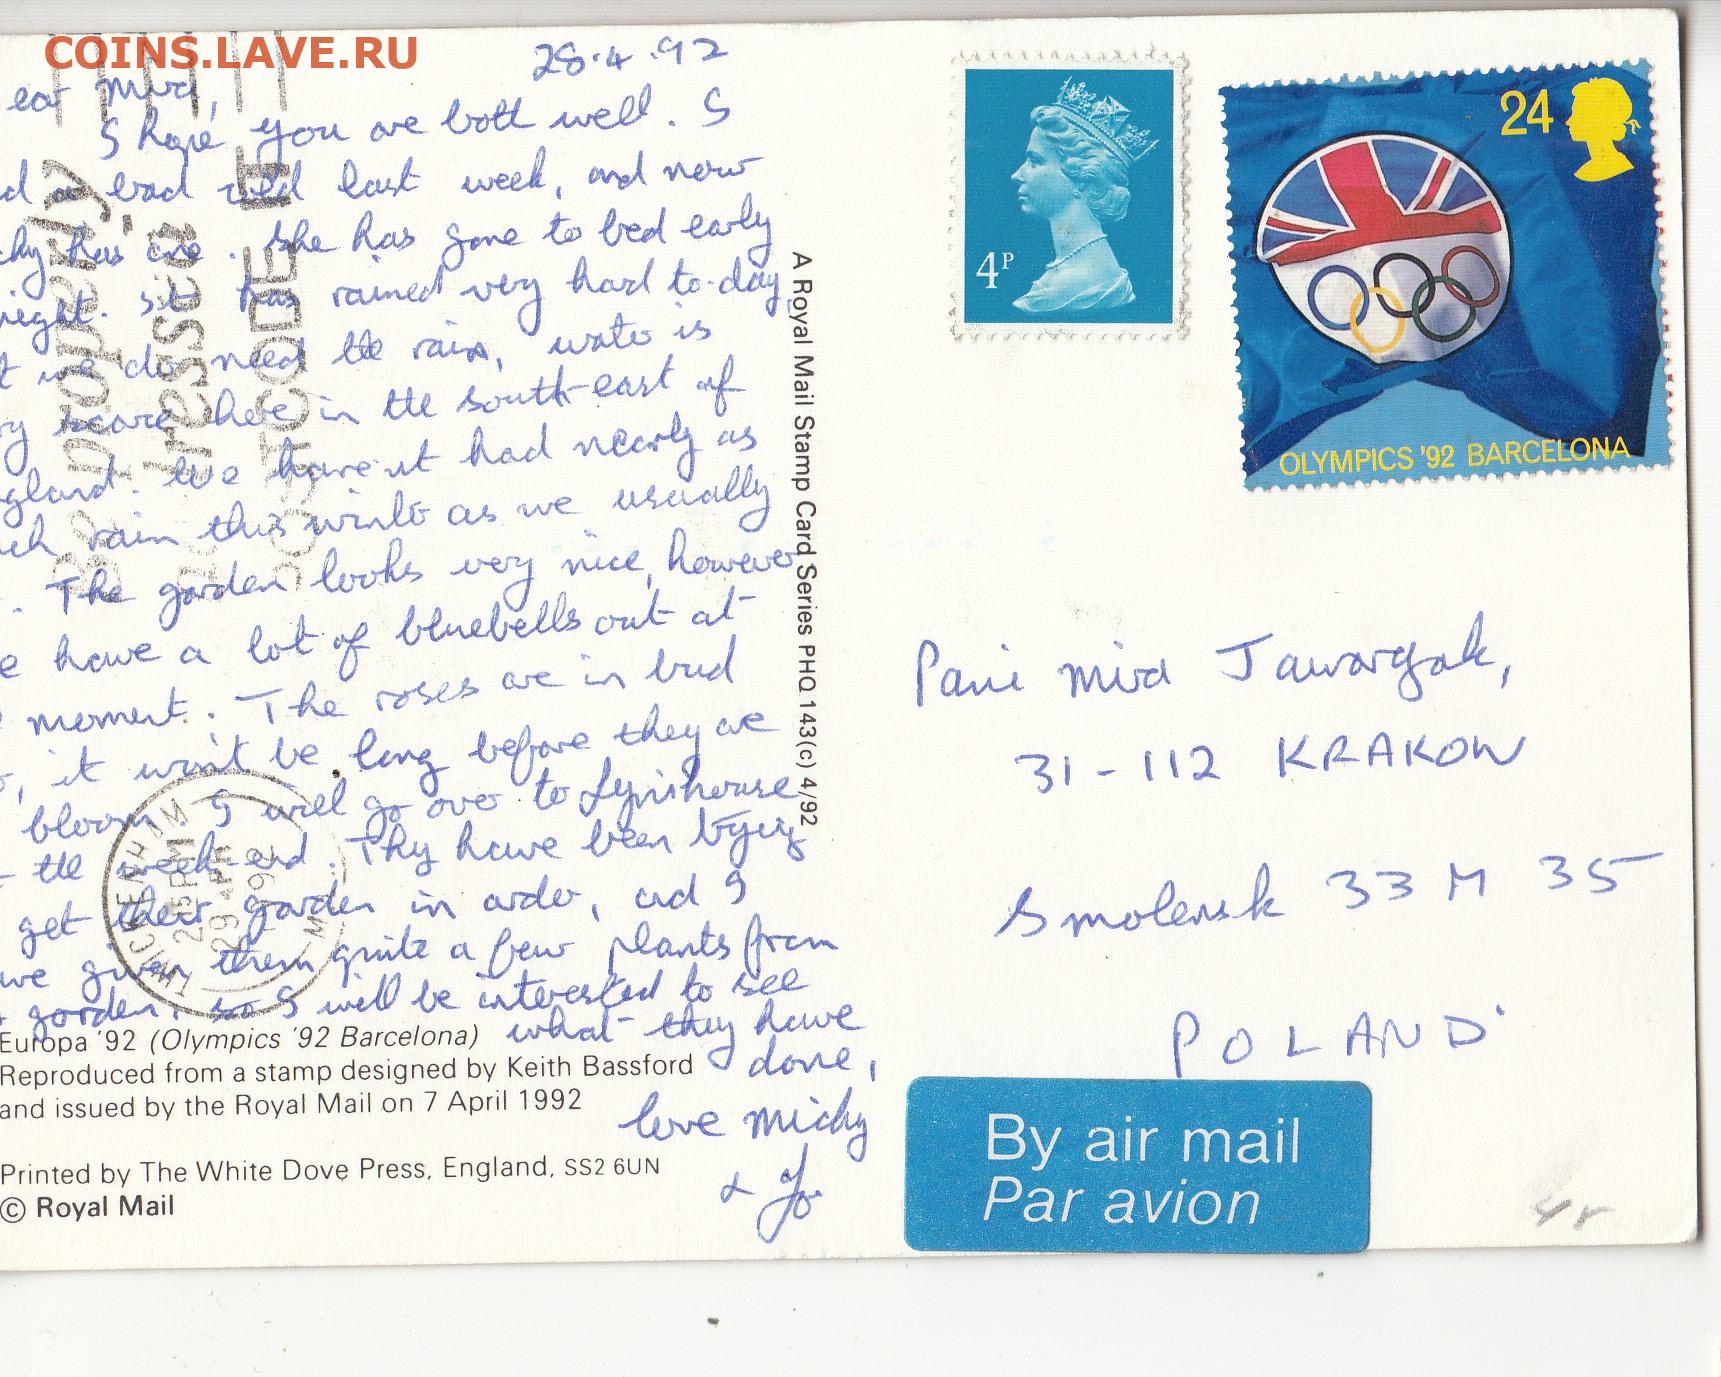 COINS.LAVE.RU
28.4.92
ear Mira,
I hope you are both well. I
d a bad cold last week, and now
chy has one. She has gone to bed early
night. It has rained very hard to-day,
t we do need the rain, water is
ry scarce here in the south-east of
gland. We haven't had nearly as
ch rain this winter as we usually
. The garden looks very nice, however
e have a lot of bluebells out at
moment. The roses are in bud
, it won't be long before they are
bloom. I will go over to
the week-end. They have been trying
get their garden in order, and I
ve given them quite a few plants from
garden, so I will be interested to see
what they have
done,
love Micky
& Jo
Be properly
addressed
POSTCODE IT
TWICKENHAM
2 15 PM
29 APR
1992
M
Europa '92 (Olympics '92 Barcelona)
Reproduced from a stamp designed by Keith Bassford
and issued by the Royal Mail on 7 April 1992
Printed by The White Dove Press, England, SS2 6UN
© Royal Mail
A Royal Mail Stamp Card Series PHQ 143(c) 4/92
4P
24
OLYMPICS '92 BARCELONA
Pani Mira
31-112 KRAKOW
Smolensk 33 M 35
POLAND
By air mail
Par avion